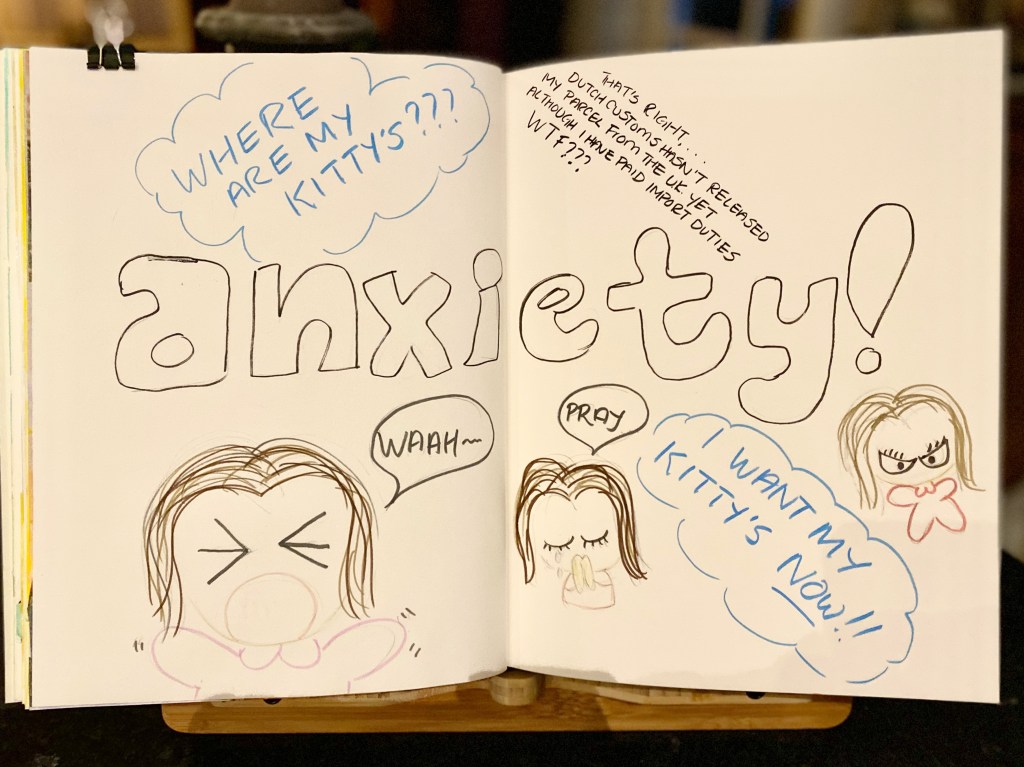 WHERE
ARE MY
KITTY'S???
THAT'S RIGHT,...
DUTCH CUSTOMS HASN'T RELEASED
MY PARCEL FROM THE UK YET
ALTHOUGH I HAVE PAID IMPORT DUTIES
WTF???
anxiety!
WAAH~
PRAY
I WANT MY
KITTY'S NOW!!